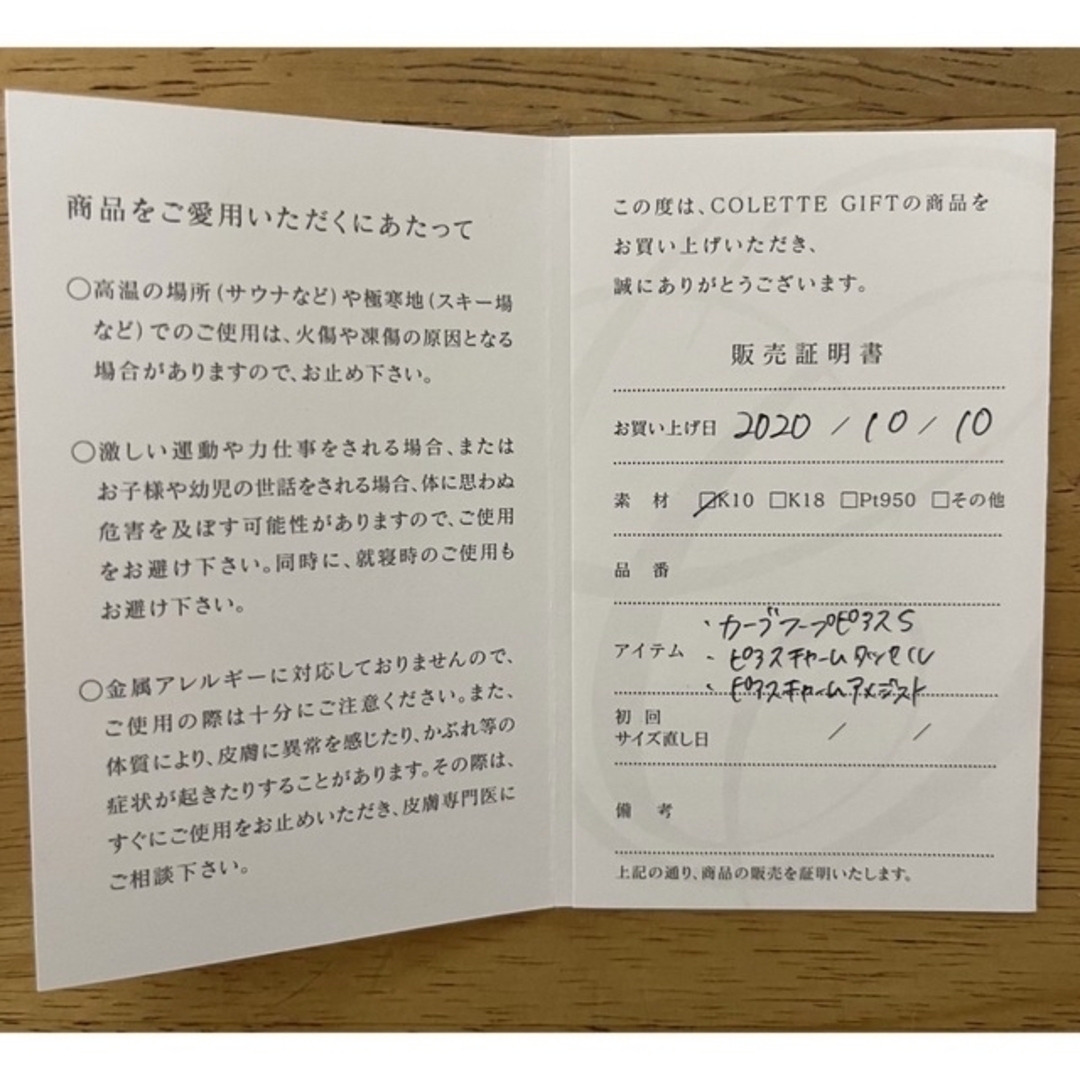 商品をご愛用いただくにあたって
○高温の場所(サウナなど)や極寒地(スキー場
など)でのご使用は、火傷や凍傷の原因となる
場合がありますので、お止め下さい。
○激しい運動や力仕事をされる場合、または
お子様や幼児の世話をされる場合、体に思わぬ
危害を及ぼす可能性がありますので、ご使用
をお避け下さい。同時に、就寝時のご使用も
お避け下さい。
○金属アレルギーに対応しておりませんので、
ご使用の際は十分にご注意ください。また、
体質により、皮膚に異常を感じたり、かぶれ等の
症状が起きたりすることがあります。その際は、
すぐにご使用をお止めいただき、皮膚専門医に
ご相談下さい。
この度は、COLETTE GIFTの商品を
お買い上げいただき、
誠にありがとうございます。
販売証明書
お買い上げ日 2020 / 10 / 10
素 材 ☑K10 □K18 □Pt950 □その他
品 番
アイテム
・カーブフープピアスS
・ピアスチャームタッセル
・ピアスチャームアメジスト
初 回
サイズ直し日 / /
備 考
上記の通り、商品の販売を証明いたします。